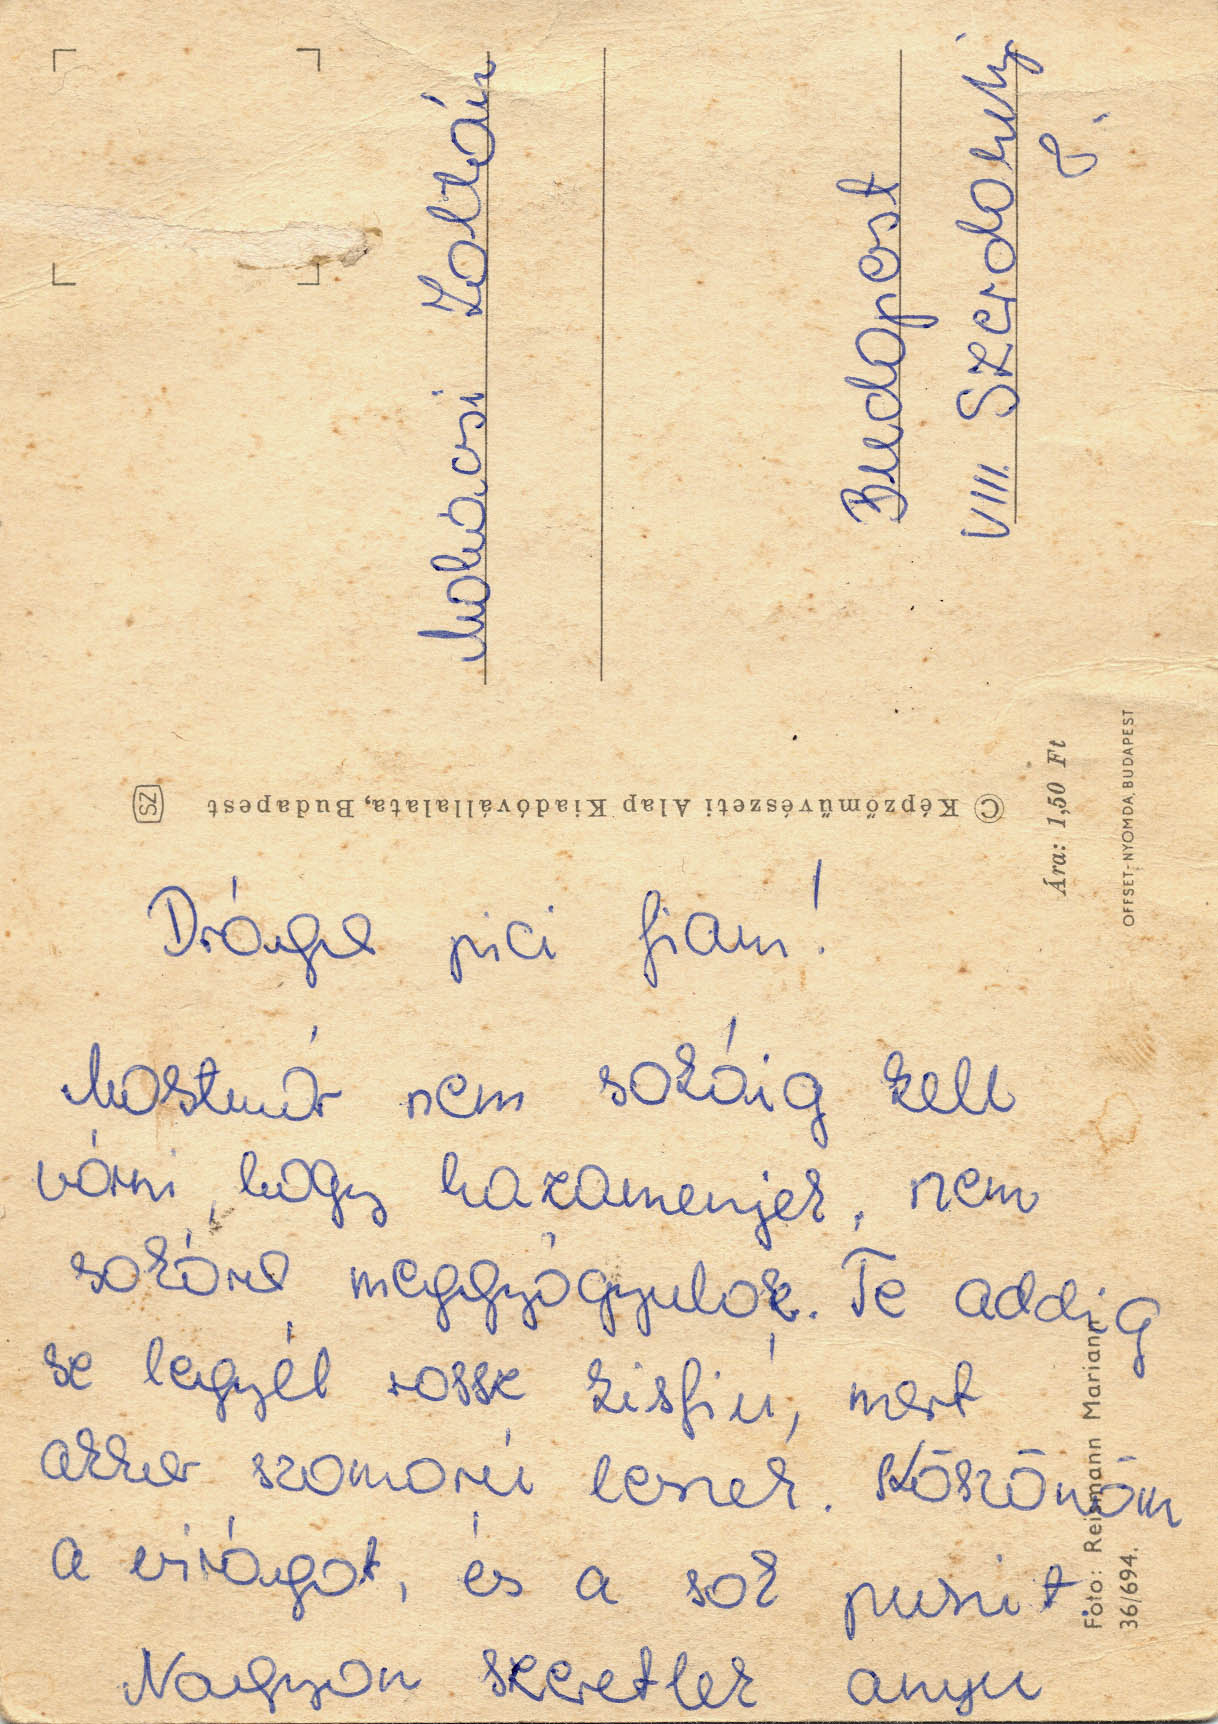 Drága pici fiam!
Mostmár nem sokáig kell
várni, hogy hazamenjek, nem
sokára meggyógyulok. Te addig
se legyél rossz kisfiú, mert
akkor szomorú leszek. Köszönöm
a virágot, és a sok puszit.
Nagyon szeretlek anyu
Zoltán
Budapest
VIII. Szerdahelyi
© Képzőművészeti Alap Kiadóvállalata, Budapest
SZ
Ára: 1,50 Ft
OFFSET-NYOMDA, BUDAPEST
Foto: Reismann Mariann
36/694.